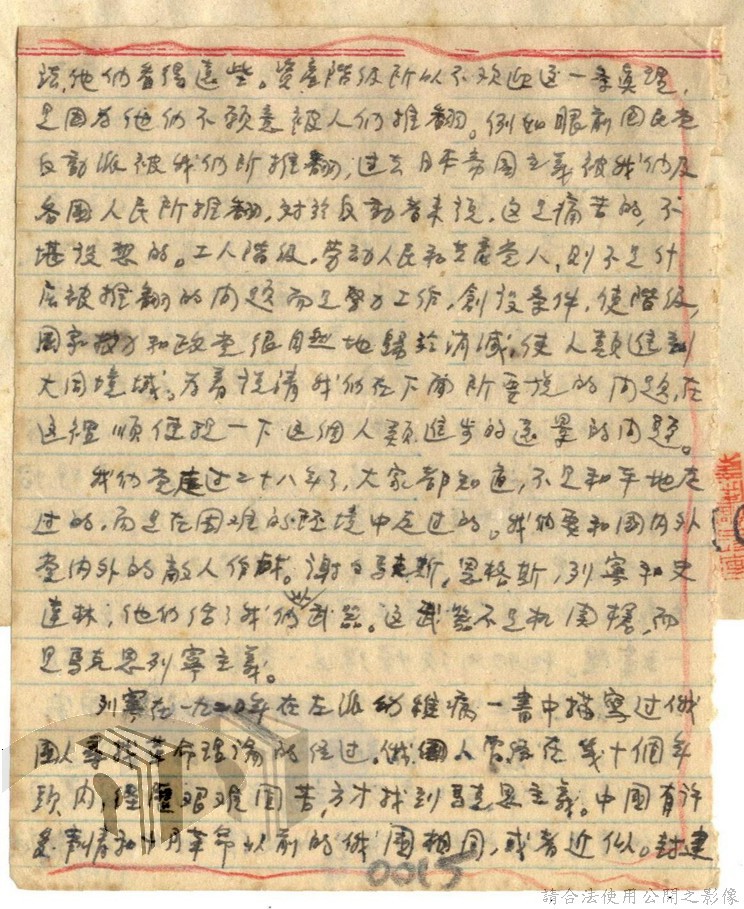 法,他们看得远些。資產階级所以不欢迎这一条真理,
是因为他们不願意被人们推翻。例如眼前国民党
反動派被我们所推翻,过去日本帝国主義被我们及
各國人民所推翻,对於反動者来说,这是痛苦的,不
堪设想的。工人階级,劳动人民和共產党人,则不是什
么被推翻的问题而是努力工作,創设条件,使階级,
國家权力和政党很自然地歸於消滅,使人類進到
大同境域。为着说清我们在下面所要说的问题,在
这裡顺便提一下这個人類進步的远景的问题。
我们党走过二十八年了,大家都知道,不是和平地走
过的,而是在困难的环境中走过的。我们要和國内外
党内外的敵人作战。谢々馬克斯,恩格斯,列寧和史
達林,他们给了我们以武器。这武器不是机関槍,而
是馬克思列寧主義。
列寧在一九二〇年在左派幼稚病一書中描寫过俄
國人尋找革命理論的经过。俄國人曾經在幾十個年
頭内,經歷艰难困苦,方才找到馬克思主義。中國有许
多事情和十月革命以前的俄國相同,或者近似。封建
0015
請合法使用公開之影像